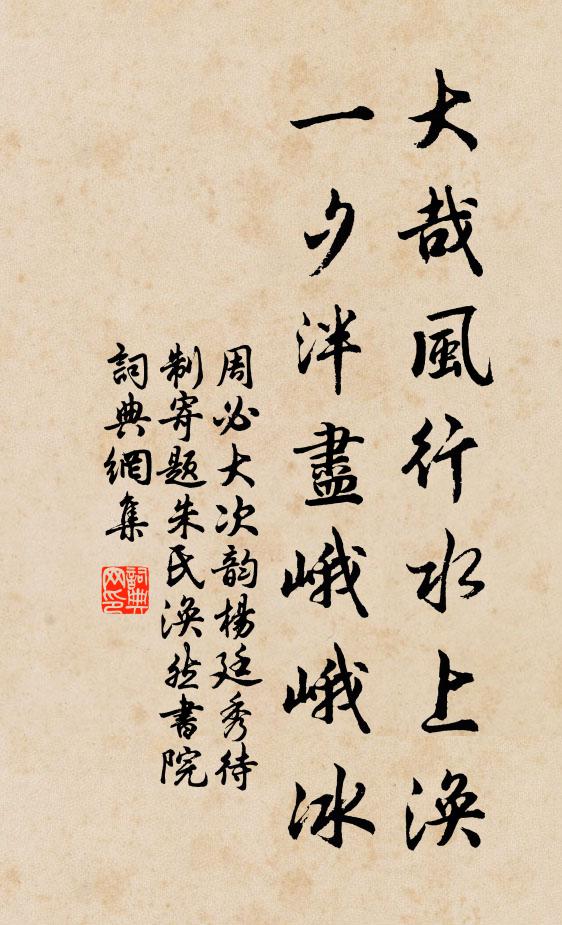 大哉風行水上渙
一夕泮盡峨峨冰
周必大次韵楊廷秀待
制寄题朱氏渙然書院
詞典網集
詞典网印